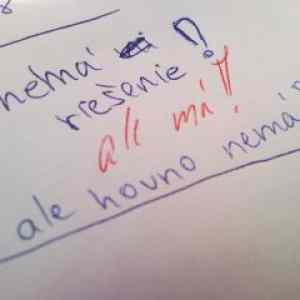 nemá
riešenie!
ale má!
ale hovno nemá